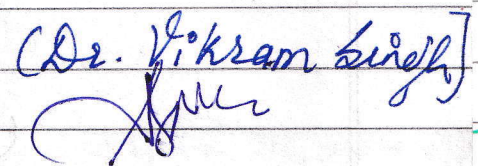 (Dr. Vikram Singh]